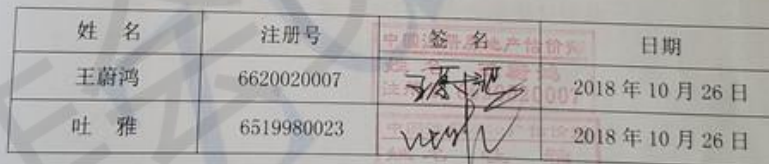 姓 名 注册号 签 名 日期
王蔚鸿 6620020007 2018 年 10 月 26 日
吐 雅 6519980023 2018 年 10 月 26 日